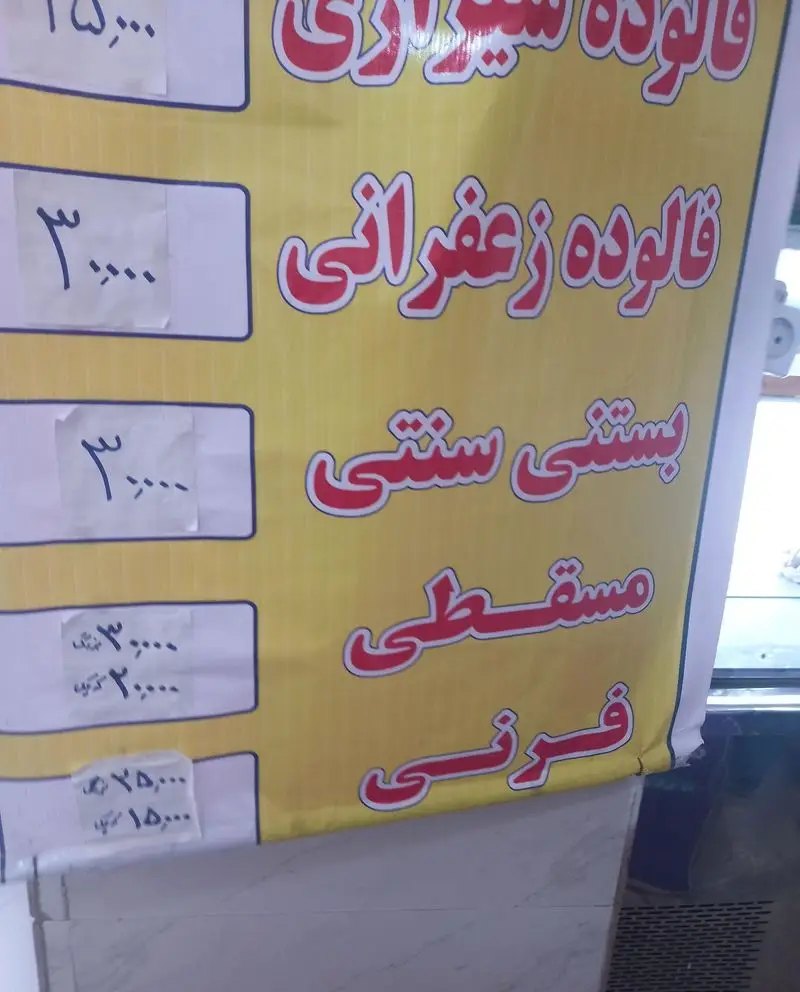 فالوده شیرازی ۲۵,۰۰۰
فالوده زعفرانی ۳۰,۰۰۰
بستنی سنتی ۳۰,۰۰۰
مسقطی ۳۰,۰۰۰ بزرگ
۲۰,۰۰۰ کوچک
فرنی ۲۵,۰۰۰ بزرگ
۱۵,۰۰۰ کوچک